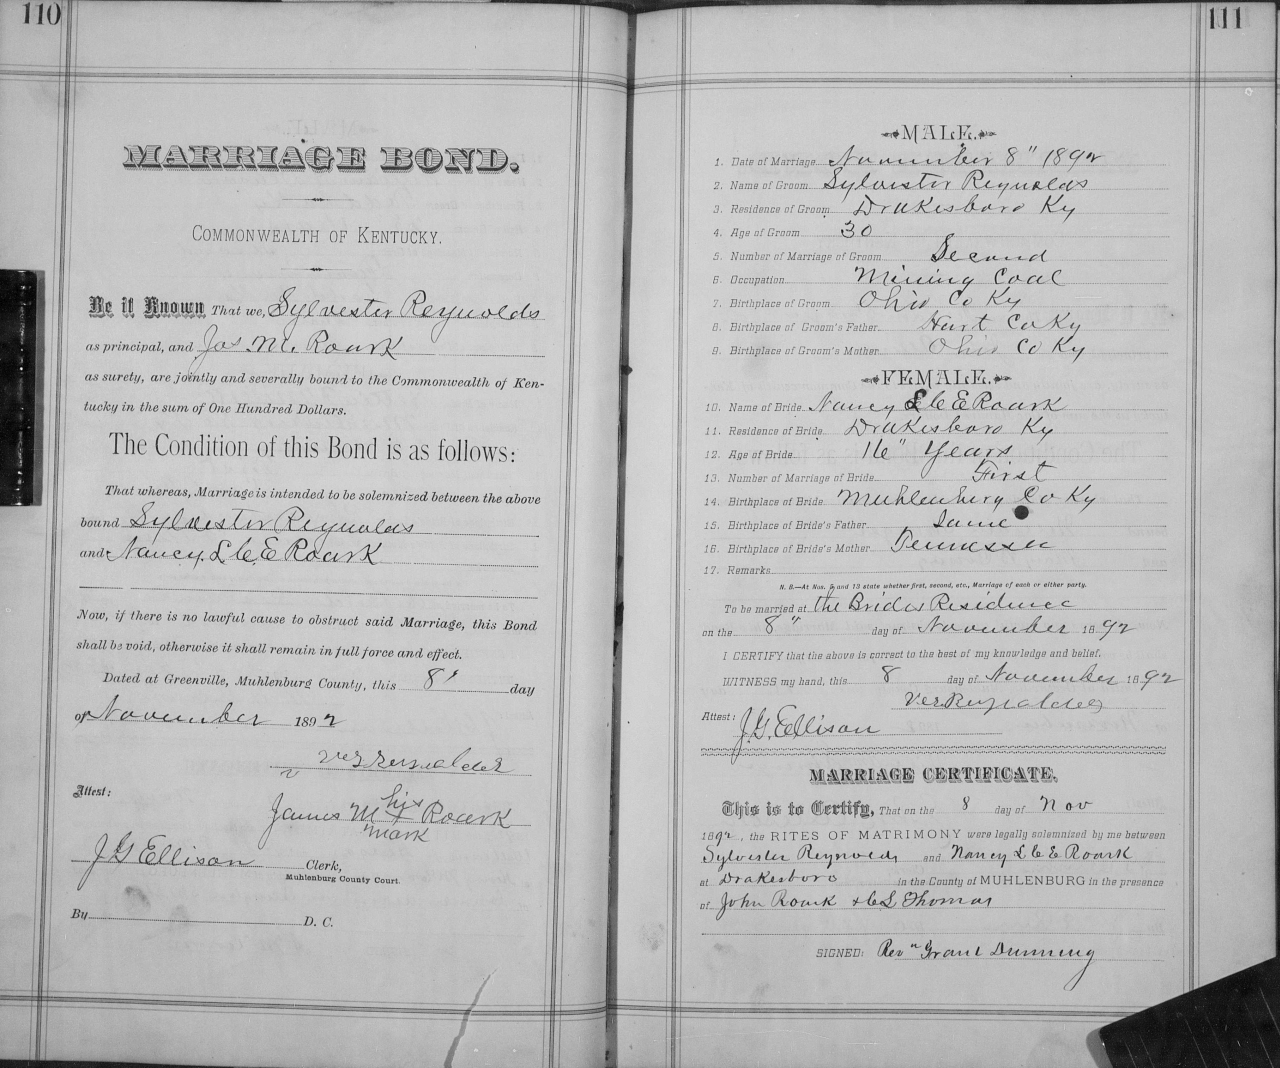 110
MARRIAGE BOND.
COMMONWEALTH OF KENTUCKY.
Be it Known That we, Sylvester Reynolds
as principal, and Jas. M. Roark
as surety, are jointly and severally bound to the Commonwealth of Ken-
tucky in the sum of One Hundred Dollars.
The Condition of this Bond is as follows:
That whereas, Marriage is intended to be solemnized between the above
bound Sylvester Reynolds
and Nancy L C E Roark
Now, if there is no lawful cause to obstruct said Marriage, this Bond
shall be void, otherwise it shall remain in full force and effect.
Dated at Greenville, Muhlenburg County, this 8" day
of November 1892
Attest:
James M his Roark
mark
J G Ellison Clerk,
Muhlenburg County Court.
By D. C.
111
MALE.
1. Date of Marriage November 8" 1892
2. Name of Groom Sylvester Reynolds
3. Residence of Groom Drakesboro Ky
4. Age of Groom 30
5. Number of Marriage of Groom Second
6. Occupation Mining Coal
7. Birthplace of Groom Ohio Co Ky
8. Birthplace of Groom's Father Hart Co Ky
9. Birthplace of Groom's Mother Ohio Co Ky
FEMALE.
10. Name of Bride Nancy L C E Roark
11. Residence of Bride Drakesboro Ky
12. Age of Bride 16" Years
13. Number of Marriage of Bride First
14. Birthplace of Bride Muhlenberg Co Ky
15. Birthplace of Bride's Father Same
16. Birthplace of Bride's Mother Tennessee
17. Remarks
N. B.—At Nos. 5 and 13 state whether first, second, etc., Marriage of each or either party.
To be married at the Brides Residence
on the 8" day of November 1892
I CERTIFY that the above is correct to the best of my knowledge and belief.
WITNESS my hand, this 8 day of November 1892
Attest: J. G. Ellison
MARRIAGE CERTIFICATE.
This is to Certify, That on the 8 day of Nov
1892, the RITES OF MATRIMONY were legally solemnized by me between
Sylvester Reynolds and Nancy L C E Roark
at Drakesboro in the County of MUHLENBURG in the presence
of John Roark & C L Thomas
SIGNED: Revn Grant Dunning